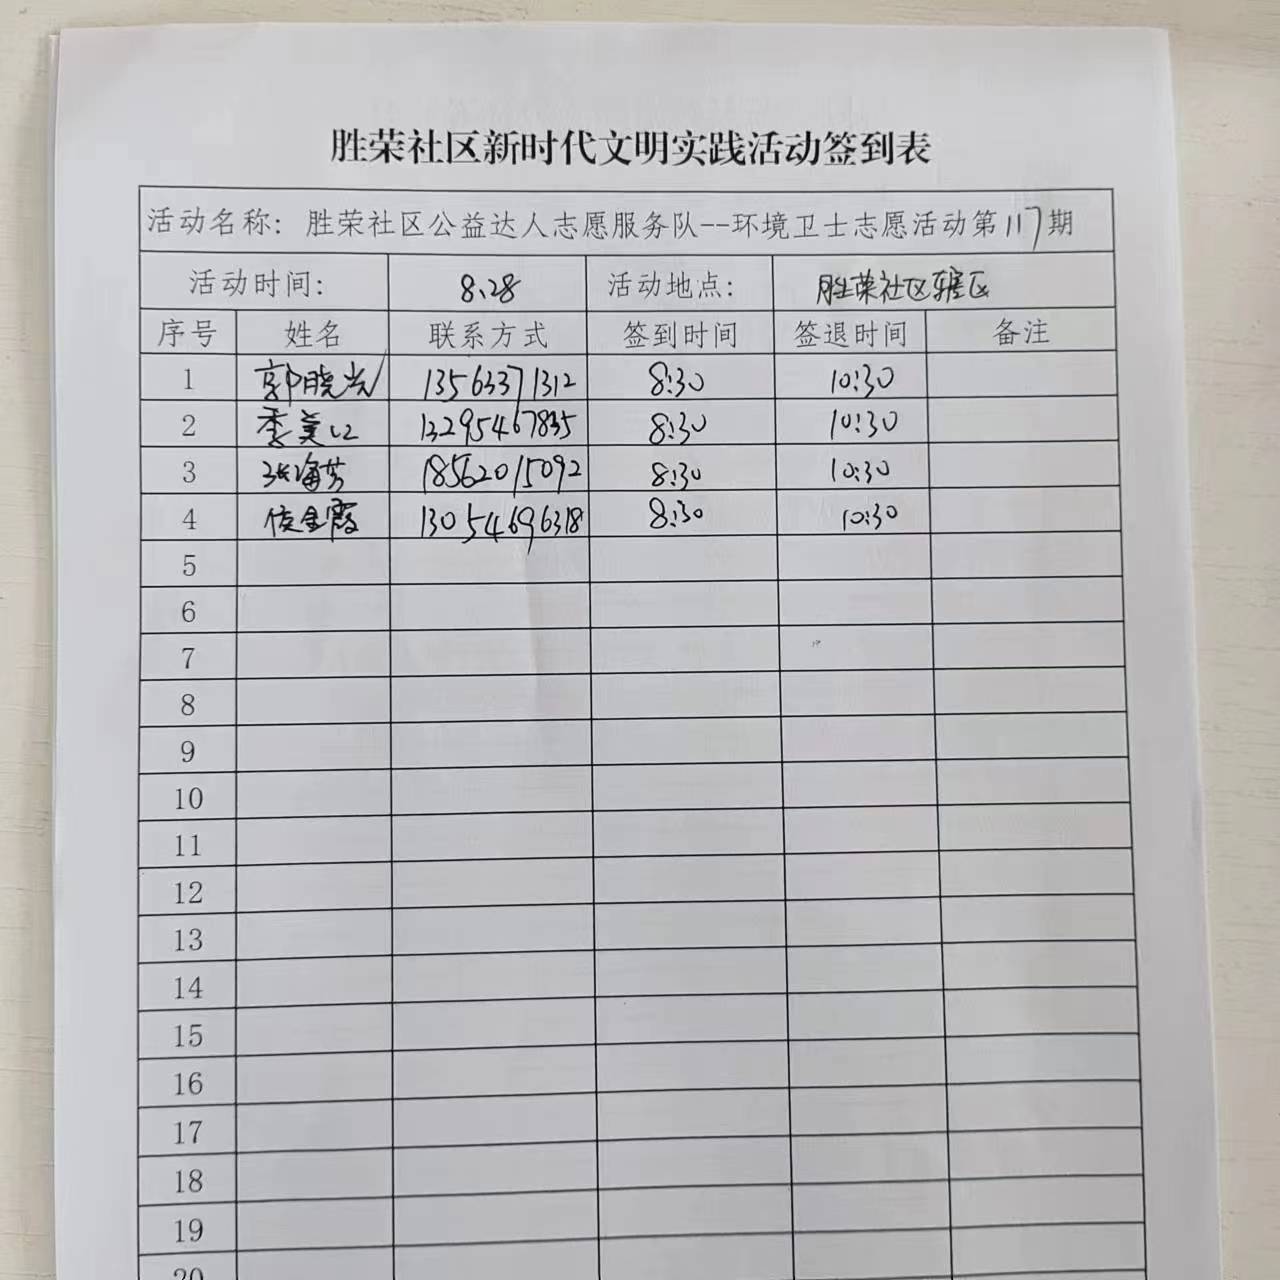 胜荣社区新时代文明实践活动签到表
活动名称: 胜荣社区公益达人志愿服务队--环境卫士志愿活动第117期
活动时间: 8.28 活动地点: 胜荣社区辖区
序号 姓名 联系方式 签到时间 签退时间 备注
1 郭晓光 13563371312 8:30 10:30
2 季美 13295467835 8:30 10:30
3 张海芳 18562015092 8:30 10:30
4 金霞 13054696318 8:30 10:30
5
6
7
8
9
10
11
12
13
14
15
16
17
18
19
20